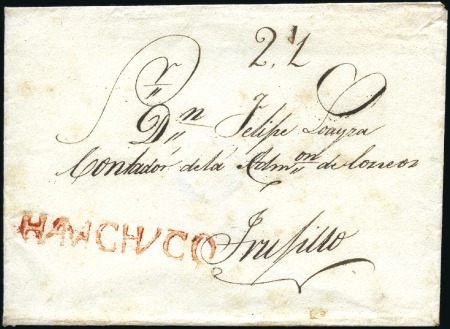 2 1/2
Sr
Dn Felipe Loayza
Contador de la Admon de Correos
HAMCHUCO Trusillo